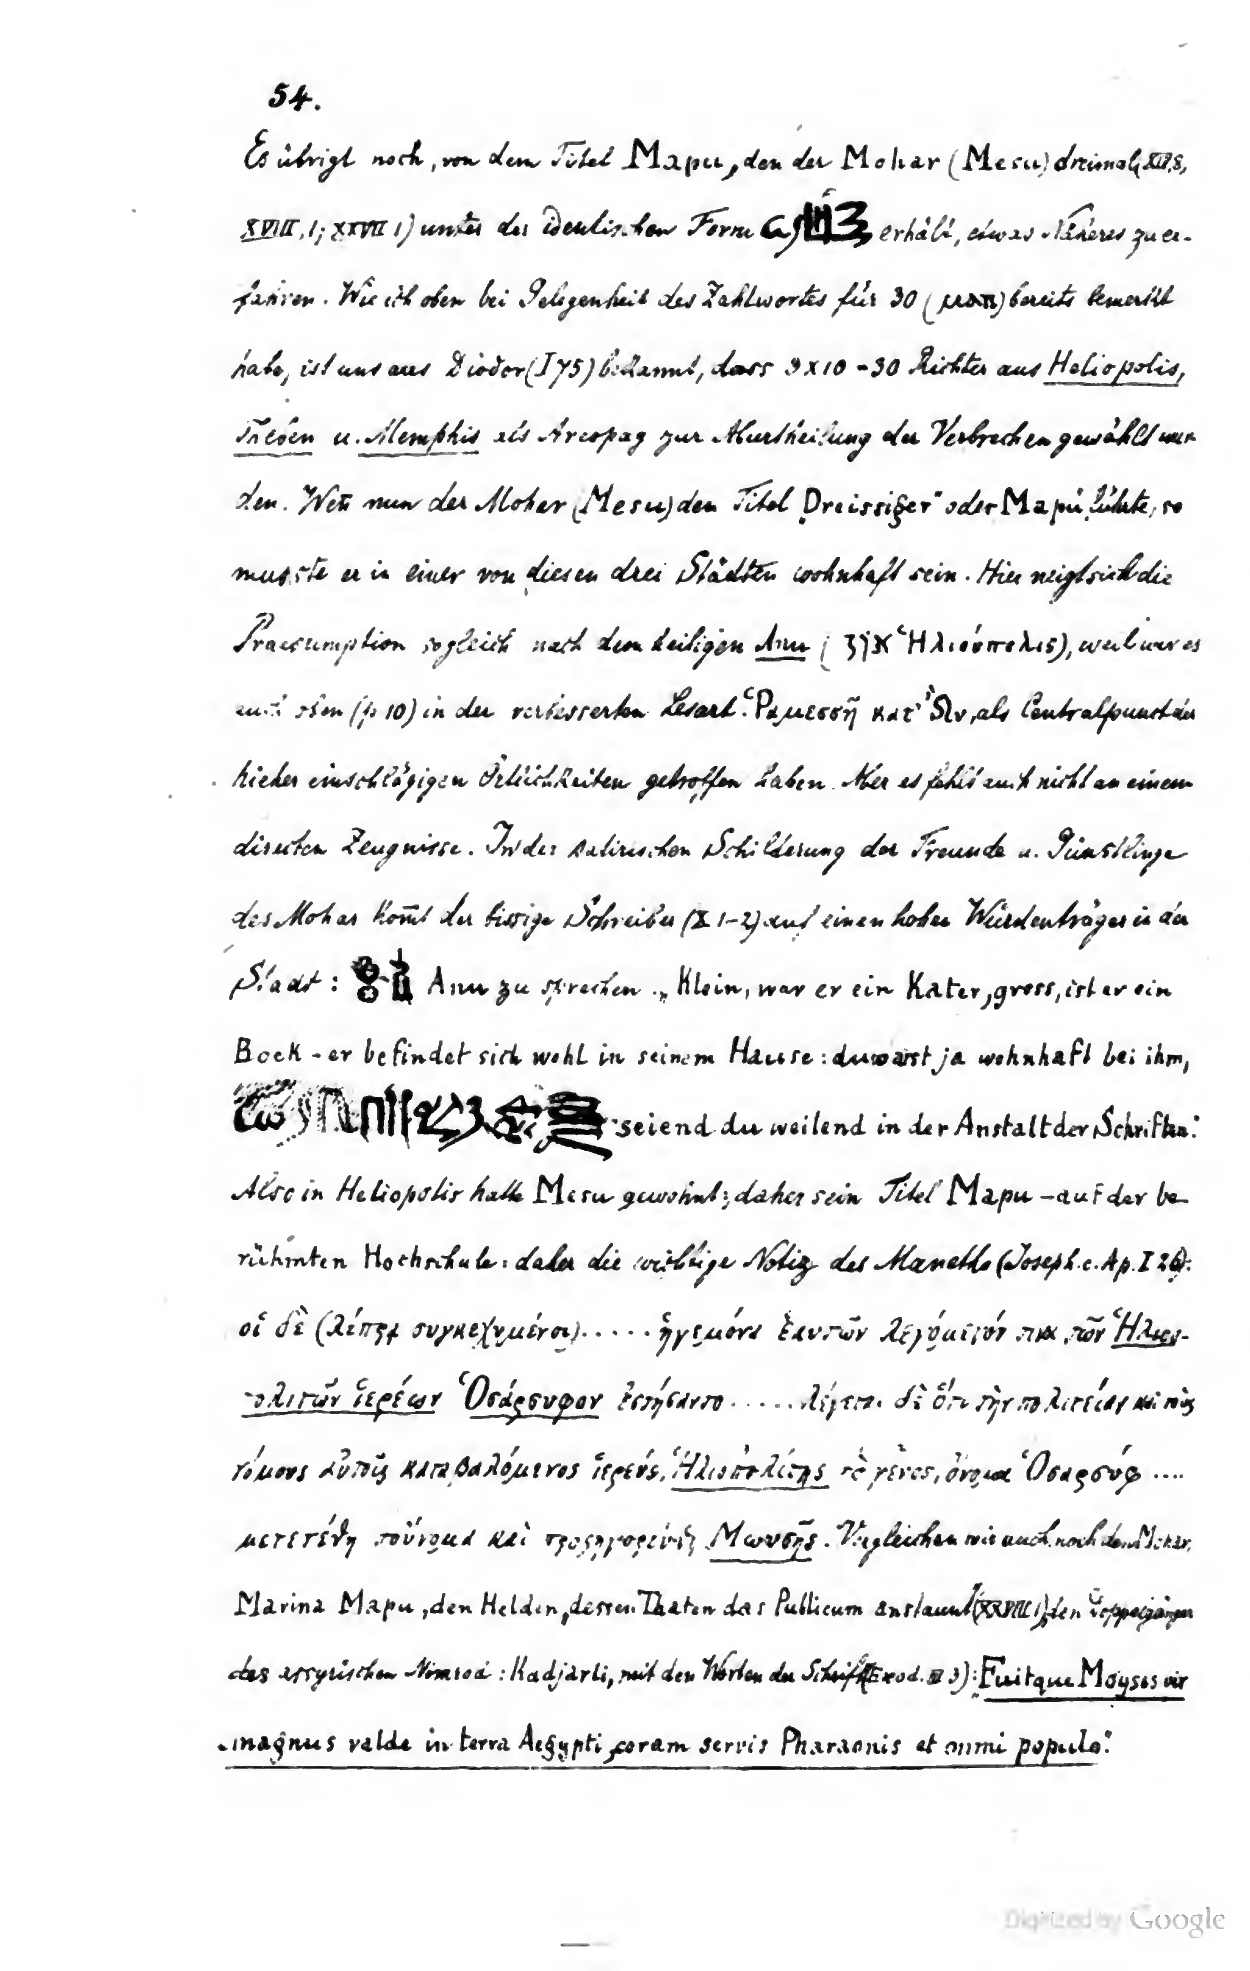 54.
Es übrigt noch, von dem Titel Mapu, den der Mohar (Mesu) dreimal (XII, 8,
XVIII, 1; XXVII 1) unter der identischen Form erhält, etwas Näheres zu er-
fahren. Wie ich oben bei Gelegenheit des Zahlwortes für 30 (ⲙⲁⲡ) bereits bemerkt
habe, ist uns aus Diodor (I 75) bekannt, dass 3 x 10 = 30 Richter aus Heliopolis,
Theben u. Memphis als Areopag zur Aburtheilung der Verbrechen gewählt wur-
den. Wen̄ nun der Mohar (Mesu) den Titel „Dreissiger" oder Mapu führte, so
musste er in einer von diesen drei Städten wohnhaft sein. Hier neigt sich die
Praesumption sogleich nach dem heiligen Anu (אןן Ἡλιούπολις), weil wir es
auch oben (p 10) in der verbesserten Lesart: Ῥαμεσσῆ κατ' Ὦν, als Centralpunct der
hieher einschlägigen Örtlichkeiten getroffen haben. Aber es fehlt auch nicht an einem
directen Zeugnisse. In der satirischen Schilderung der Freunde u. Günstlinge
des Mohar kom̄t der bissige Schreiber (X 1-2) auf einen hohen Würdenträger in der
Stadt: Anu zu sprechen „Klein, war er ein Kater, gross, ist er ein
Bock - er befindet sich wohl in seinem Hause: du warst ja wohnhaft bei ihm,
seiend du weilend in der Anstalt der Schriften."
Also in Heliopolis hatte Mesu gewohnt; daher sein Titel Mapu - auf der be-
rühmten Hochschule: daher die wichtige Notiz des Manetho (Joseph. c. Ap. I 26):
οἱ δὲ (λέπρᾳ συγκεχυμένοι)..... ἡγεμόνα ἑαυτῶν λεγόμενόν τινα τῶν Ἡλιοπ-
ολιτῶν ἱερέων Ὀσάρσυφον ἐστήσαντο ..... λέγεται δὲ ὅτι τὴν πολιτείαν καὶ τοὺς
νόμους αὐτοῖς καταβαλόμενος ἱερεύς, Ἡλιοπολίτης τὸ γένος, ὄνομα Ὀσαρσύφ ....
μετετέθη τοὔνομα καὶ προσηγορεύθη Μωυσῆς. Vergleichen wir auch noch den Mohar,
Marina Mapu, den Helden, dessen Thaten das Publicum anstaunt (XXVIII 1), den Doppelgänger
des assyrischen Nimrod: Kadjarti, mit den Worten der Schrift (Exod. XI 3): „Fuitque Moyses vir
magnus valde in terra Aegypti coram servis Pharaonis et omni populo."
Digitized by Google